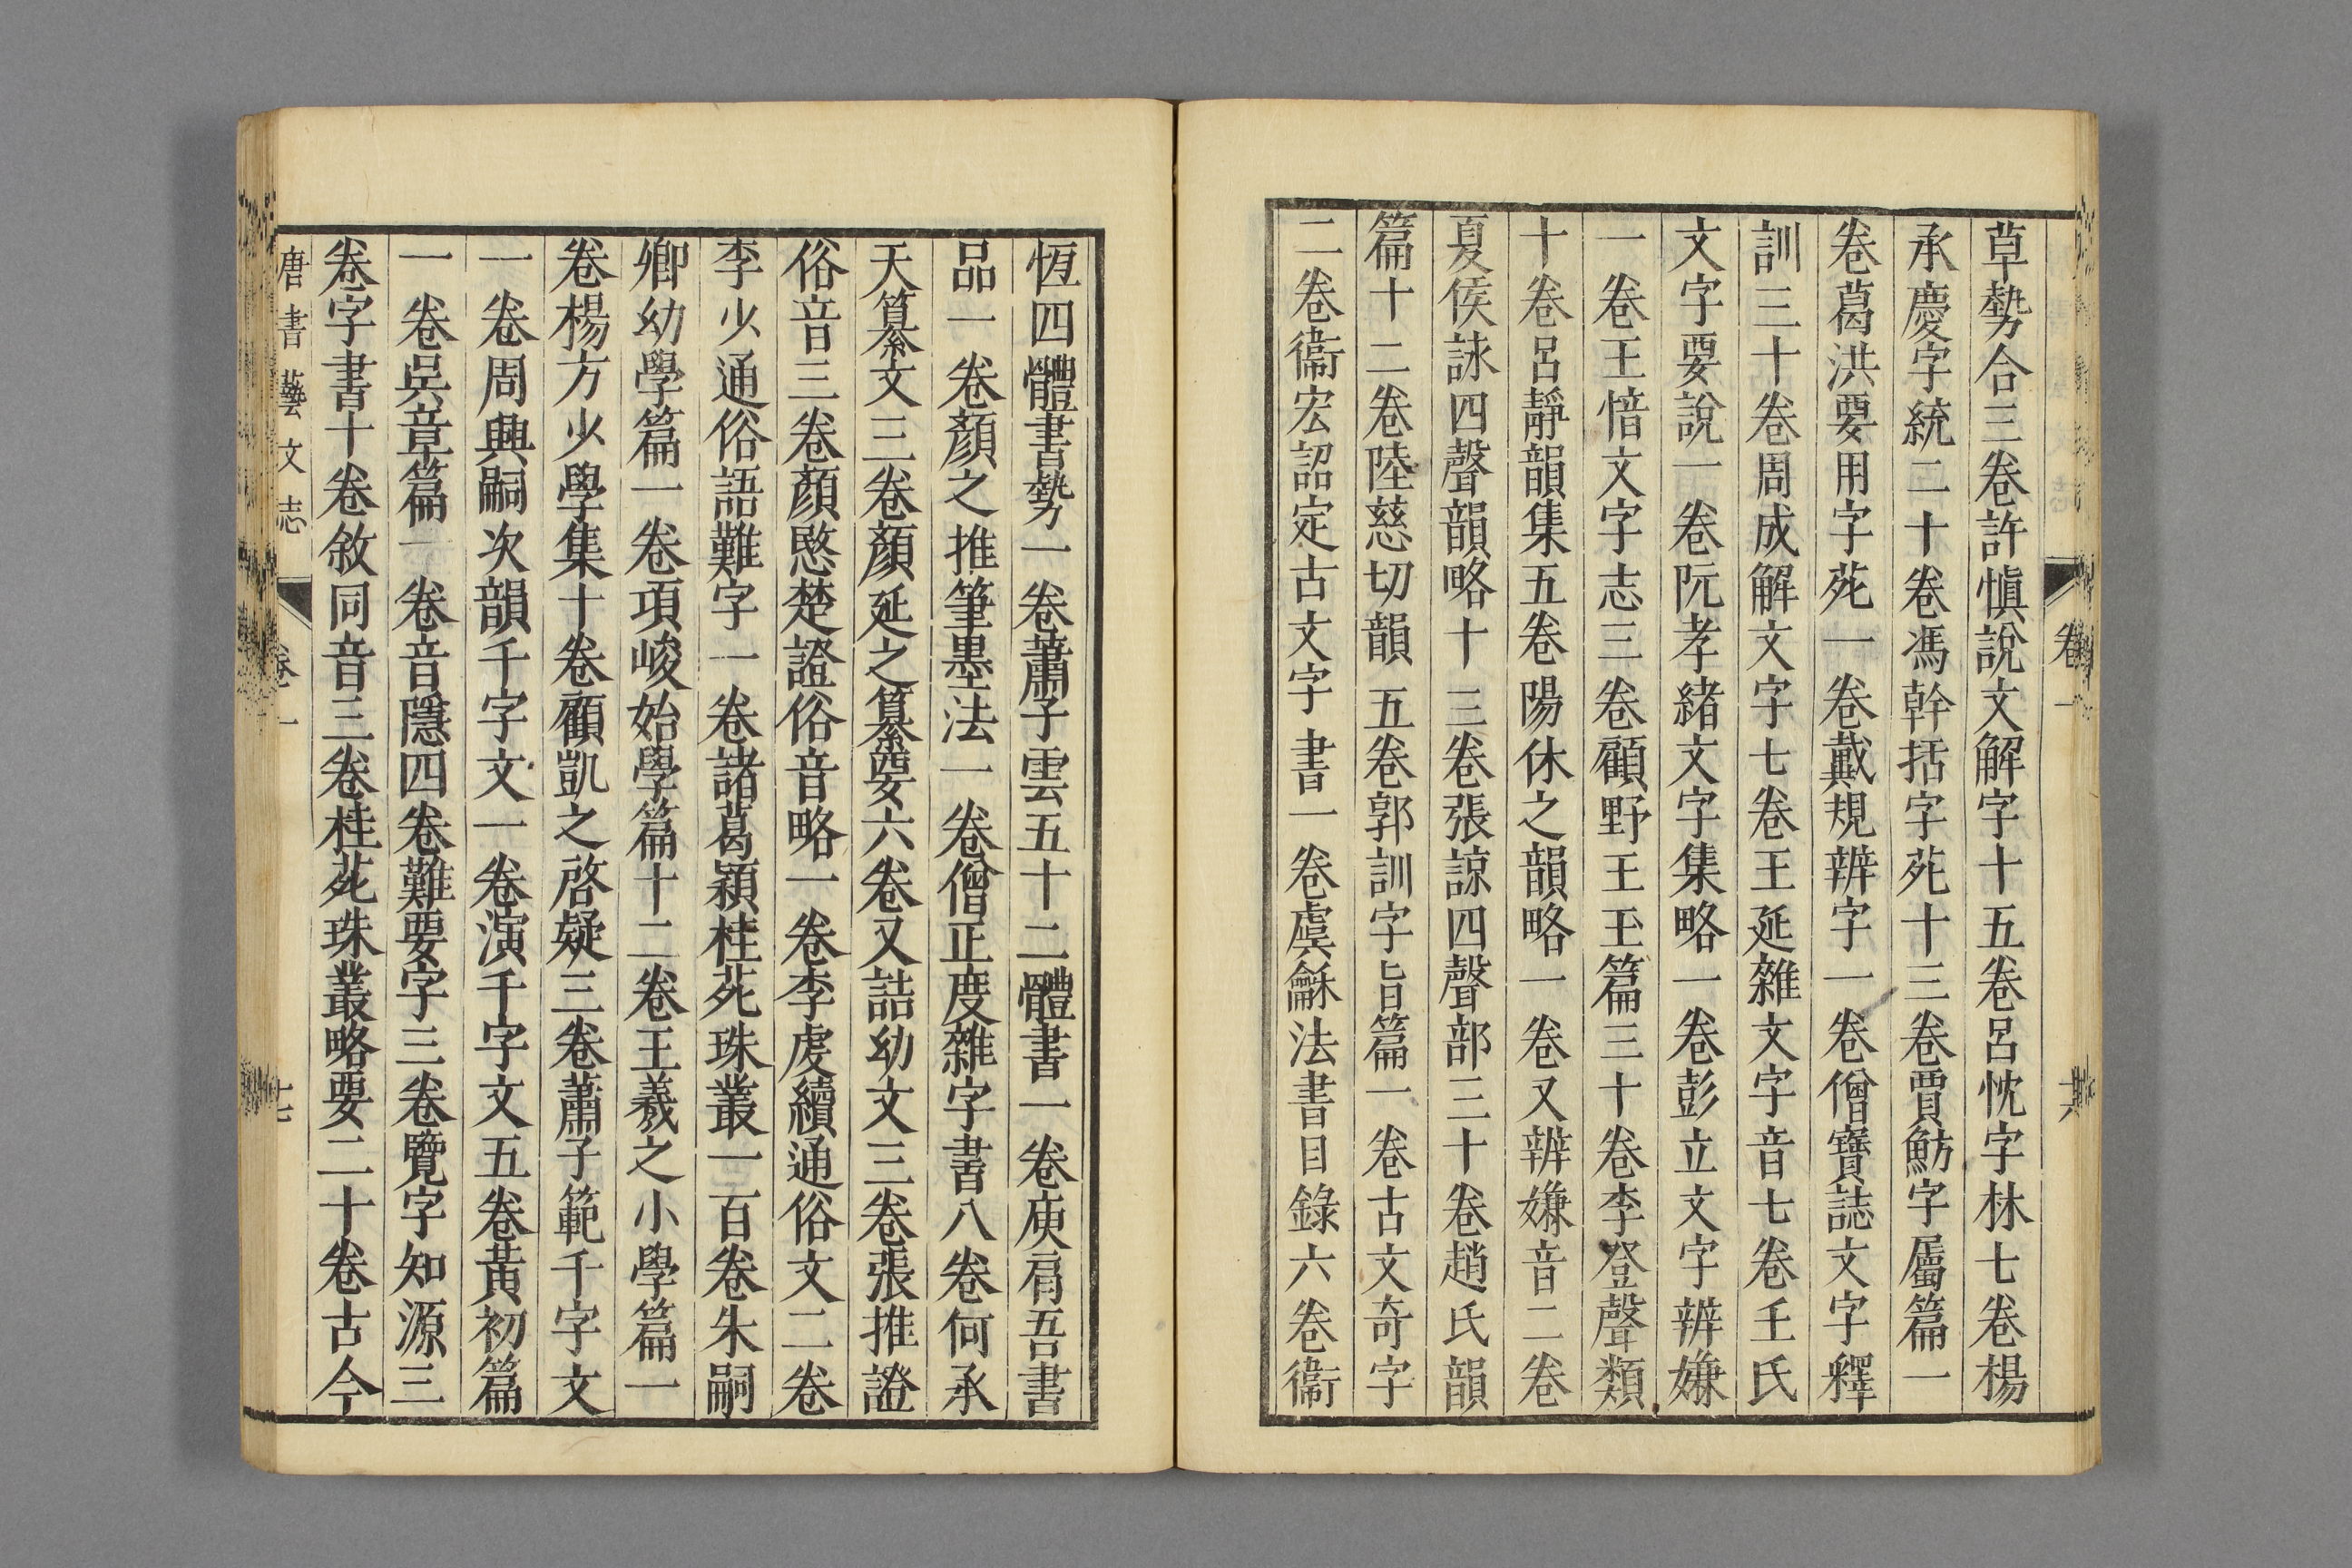 卷一
草勢合三卷許愼說文解字十五卷呂忱字林七卷楊
承慶字統二十卷馮幹括字苑十三卷賈魴字屬篇一
卷葛洪要用字苑一卷戴規辨字一卷僧寶誌文字釋
訓三十卷周成解文字七卷王延雜文字音七卷王氏
文字要說一卷阮孝緒文字集略一卷彭立文字辨嫌
一卷王愔文字志三卷顧野王玉篇三十卷李登聲類
十卷呂靜韻集五卷陽休之韻略一卷又辨嫌音二卷
夏侯詠四聲韻略十三卷張諒四聲部三十卷趙氏韻
篇十二卷陸慈切韻五卷郭訓字旨篇一卷古文奇字
二卷衞宏詔定古文字書一卷虞龢法書目錄六卷衞
恆四體書勢一卷蕭子雲五十二體書一卷庾肩吾書
品一卷顏之推筆墨法一卷僧正度雜字書八卷何承
天纂文三卷顏延之纂要六卷又詰幼文三卷張推證
俗音三卷顏愍楚證俗音略一卷李虔續通俗文二卷
李少通俗語難字一卷諸葛潁桂苑珠叢一百卷朱嗣
卿幼學篇一卷項峻始學篇十二卷王羲之小學篇一
卷楊方少學集十卷顧凱之啓疑三卷蕭子範千字文
一卷周興嗣次韻千字文一卷演千字文五卷黃初篇
一卷吳章篇一卷音隱四卷難要字三卷覽字知源三
卷字書十卷敘同音三卷桂苑珠叢略要二十卷古今
唐書藝文志 卷一 十七